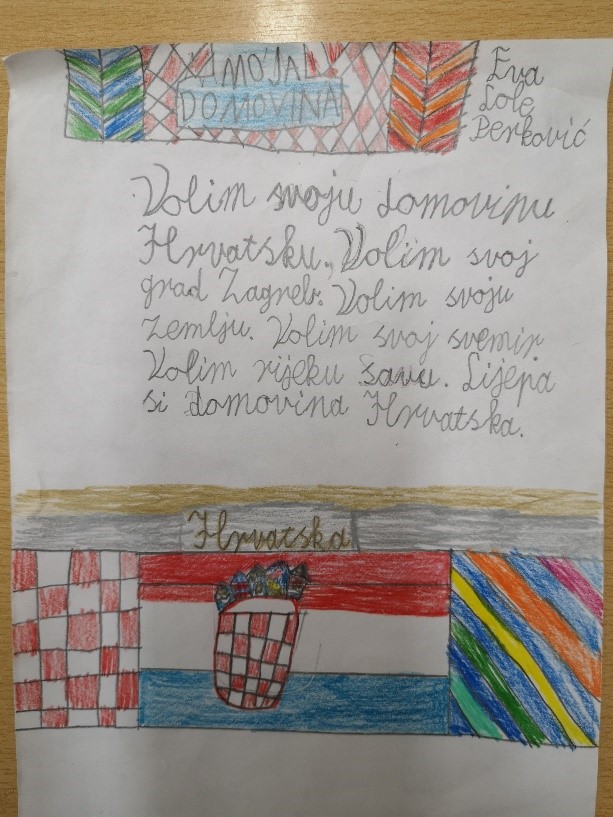 MOJA
DOMOVINA
Eva
Lole
Perković
Volim svoju domovinu
Hrvatsku. Volim svoj
grad Zagreb. Volim svoju
zemlju. Volim svoj svemir
Volim rijeku savu. Lijepa
si domovina Hrvatska.
Hrvatska